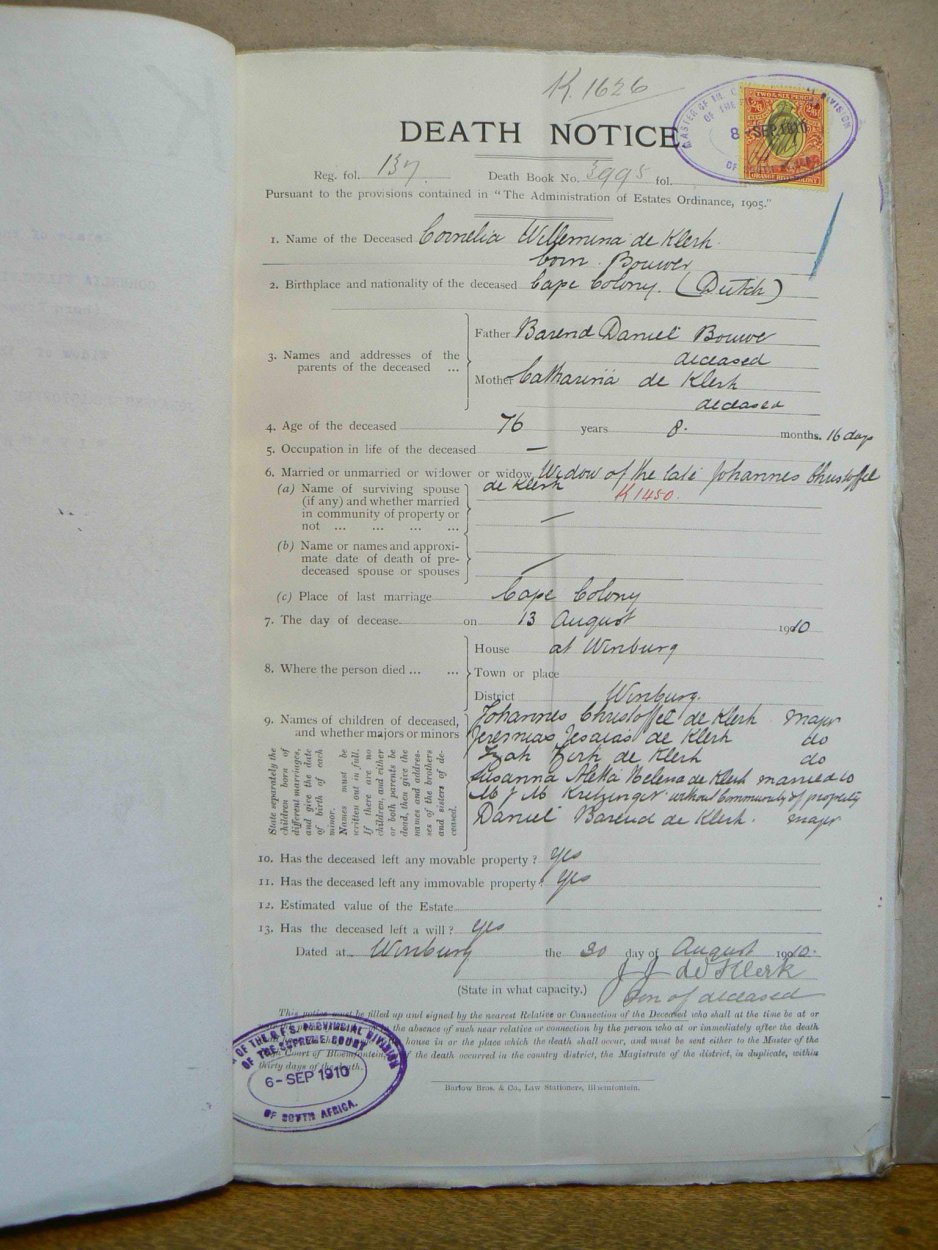 K. 1626
DEATH NOTICE.
TWO & SIX PENCE
2/6 2/6
8 - SEP. 1910
ORANGE RIVER COLONY
Reg. fol. 137. Death Book No. 3995 fol.
Pursuant to the provisions contained in "The Administration of Estates Ordinance, 1905."
1. Name of the Deceased Cornelia Willemina de Klerk
born Bouwer
2. Birthplace and nationality of the deceased Cape Colony. (Dutch)
3. Names and addresses of the parents of the deceased ...
Father Barend Daniel Bouwe
deceased
Mother Catharina de Klerk
deceased
4. Age of the deceased 76 years 8. months. 16 days
5. Occupation in life of the deceased —
6. Married or unmarried or widower or widow Widow of the late Johannes Christoffel
de Klerk K1450.
(a) Name of surviving spouse
(if any) and whether married
in community of property or
not ... ... ... ... —
(b) Name or names and approxi-
mate date of death of pre-
deceased spouse or spouses
(c) Place of last marriage Cape Colony
7. The day of decease on 13 August 1910
8. Where the person died ... ...
House at Winburg
Town or place
District Winburg.
9. Names of children of deceased,
and whether majors or minors
Johannes Christoffel de Klerk major
Jeremias Jesaias de Klerk do
Izak Dirk de Klerk do
Susanna Aletta Helena de Klerk married to
M J M Kritzinger without Community of property
Daniel Barend de Klerk. major
State separately the
children born of
different marriages,
and give the date
of birth of each
minor.
Names must be
written out in full.
If there are no
children, and either
or both parents be
dead, then give the
names and addres-
ses of the brothers
and sisters of de-
ceased.
10. Has the deceased left any movable property? Yes
11. Has the deceased left any immovable property? Yes
12. Estimated value of the Estate
13. Has the deceased left a will? Yes
Dated at Winburg the 30 day of August 1910.
J J de Klerk
(State in what capacity.) Son of deceased
This notice must be filled up and signed by the nearest Relative or Connection of the Deceased who shall at the time be at or
the absence of such near relative or connection by the person who at or immediately after the death
house in or the place which the death shall occur, and must be sent either to the Master of the
Court of Bloemfontein if the death occurred in the country district, the Magistrate of the district, in duplicate, within
thirty days of the death.
OF THE O.F.S. PROVINCIAL DIVISION
OF THE SUPREME COURT
6 - SEP 1910
OF SOUTH AFRICA.
Barlow Bros. & Co., Law Stationers, Bloemfontein.